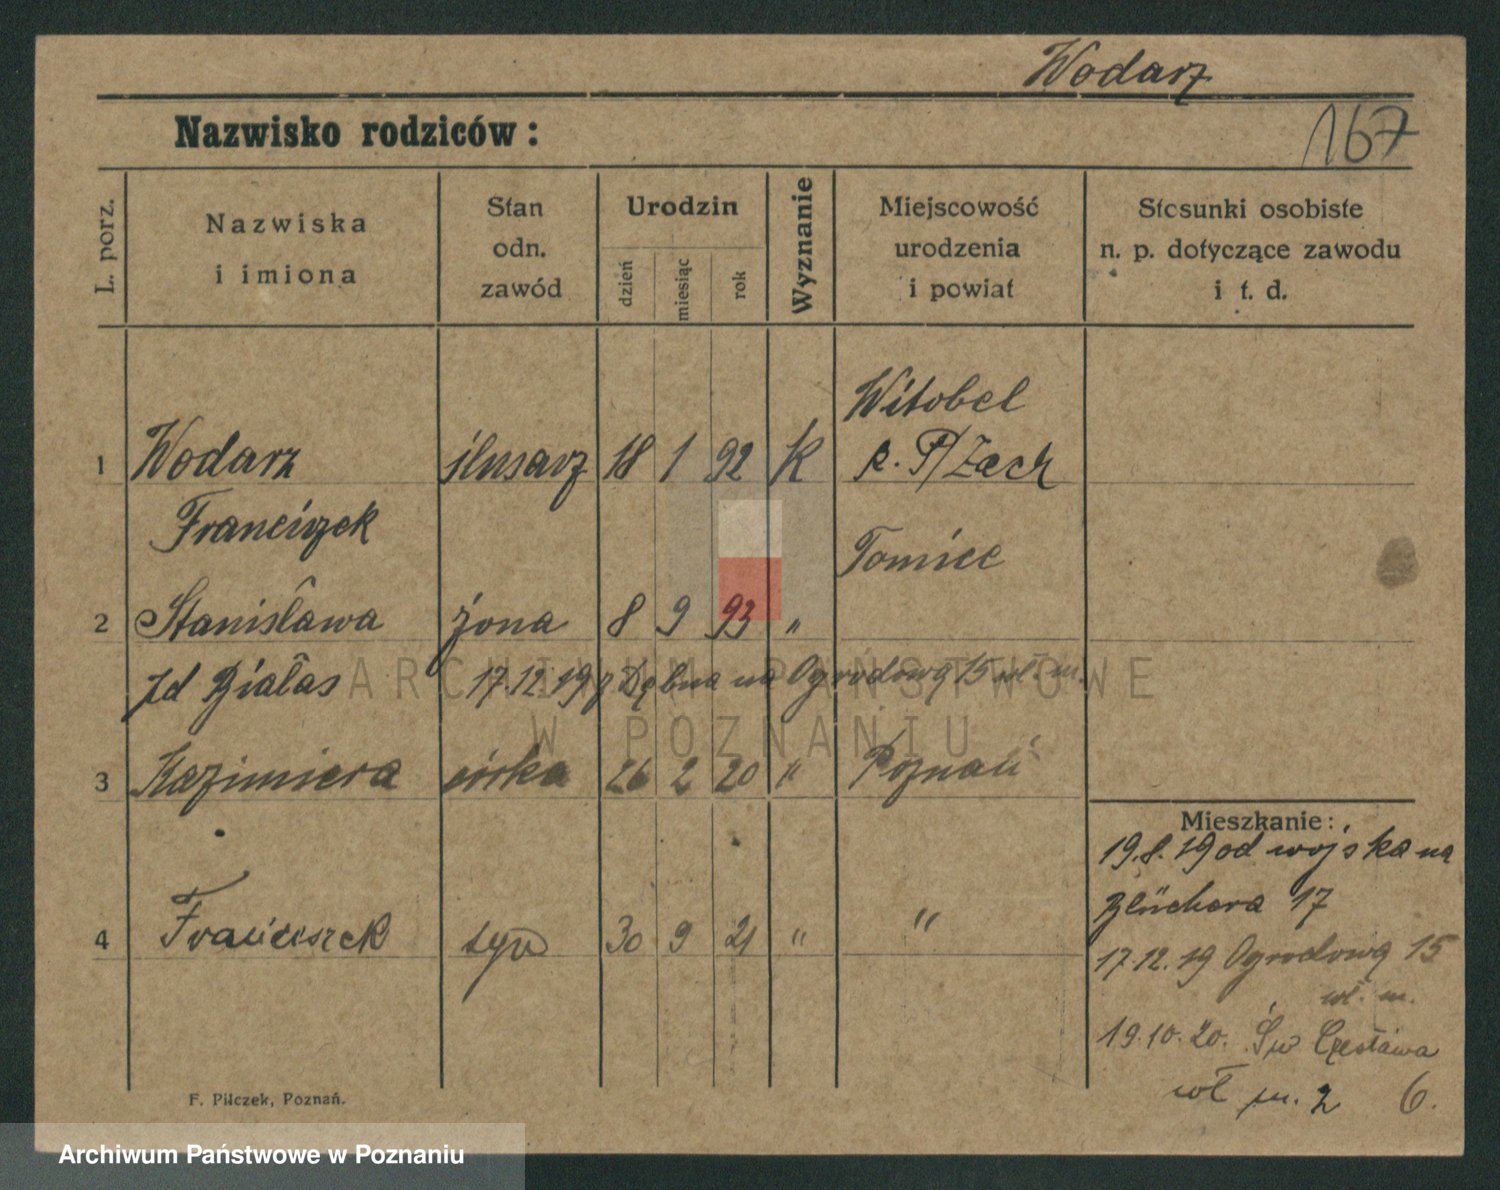 Wodarz
Nazwisko rodziców:
167
L. porz.
Nazwiska
i imiona
Stan
odn.
zawód
Urodzin
dzień
miesiąc
rok
Wyznanie
Miejscowość
urodzenia
i powiat
Stosunki osobiste
n. p. dotyczące zawodu
i t. d.
Witobel
1 Wodarz ślusarz 18 1 92 K k. P/Zach
Franciszek
Tomice
2 Stanisława żona 8 9 93 "
zd Białas 17.12.19 z Dębna na Ogrodową 15 wł. m.
ARCHIWUM PAŃSTWOWE
W POZNANIU
3 Kazimiera córka 26 2 20 " Poznań
Mieszkanie:
19.8.19 od wojska na
Blüchera 17
4 Franciszek syn 30 9 21 " "
17.12.19 Ogrodową 15
wł. m.
19.10.20. Św Czesława
wł m. 2 6.
F. Pilczek, Poznań.
Archiwum Państwowe w Poznaniu